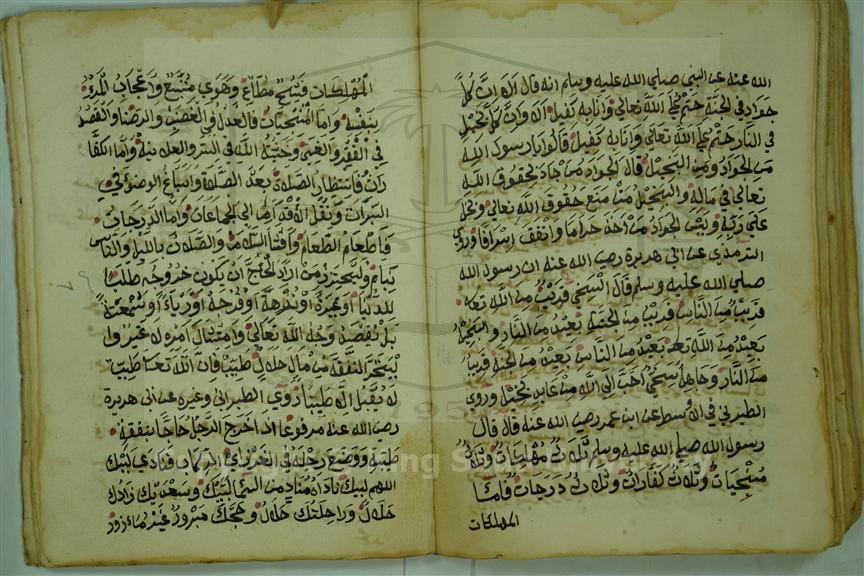 الله عنه عن النبي صلي الله عليه وسلم انه قال الا ان كل
جواد في الجنة حتم علي الله تعالي وانا به كفيل الا وان كل بخيل
في النار حتم علي الله تعالي وانا به كفيل قالوا يا رسول الله
من الجواد ومن البخيل قال الجواد من جاد بحقوق الله
تعالي في ماله والبخيل من منع حقوق الله تعالي وبخل
علي ربه وليس الجواد من اخذ حراما وانفق اسرافا وروي
الترمذي عن ابي هريرة رضي الله عنه ان رسول الله
صلي الله عليه وسلم قال السخي قريب من الله تعا
قريب من الناس قريب من الجنة بعيد من النار والبخيل
بعيد من الله تعا بعيد من الناس بعيد من الجنة قريب
من النار وجاهل سخي احب الي الله من عابد بخيل وروي
الطبراني في الاوسط عن ابن عمر رضي الله عنه قال قال
رسول الله صلي الله عليه وسلم ثلاث مهلكات وثلاث
منجيات وثلاث كفارات وثلاث درجات فاما
المهلكات
المهلكات فشح مطاع وهوي متبع واعجاب المرء
بنفسه واما المنجيات فالعدل في الغضب والرضا والقصد
في الفقر والغني وخشية الله في السر والعلانية واما الكفا
رات فانتظار الصلاة بعد الصلاة واسباغ الوضوء في
السبرات ونقل الاقدام الي الجماعات واما الدرجات
فاطعام الطعام وافشا السلام والصلاة بالليل والناس
نيام وليحترز من اراد الحج ان يكون خروجه طلبا
للدنيا او عبرة او نزهة او فرجة او رياء او سمعة
بل يقصد وجه الله تعالي وامتثال امره لا غير وا
ليتحر النفقة من مال حلال طيب فان الله تعا طيب
لا يقبل الا طيبا روي الطبراني وغيره عن ابي هريرة
رضي الله عنه مرفوعا اذا خرج الرجل حاجا بنفقة
طيبة ووضع رجله في الغرز اي الركاب فنادي لبيك
اللهم لبيك ناداه مناد من السما لبيك وسعديك زادك
حلال وراحلتك حلال وحجك مبرور غير مازور